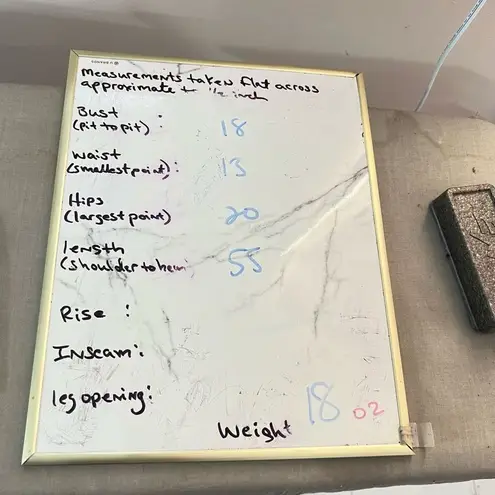 Measurements taken flat across
approximate + ½ inch
Bust
(pit to pit) : 18
Waist
(smallest point) : 13
Hips
(largest point) 20
length
(shoulder to hem 55
Rise :
Inseam :
leg opening :
Weight 18 oz